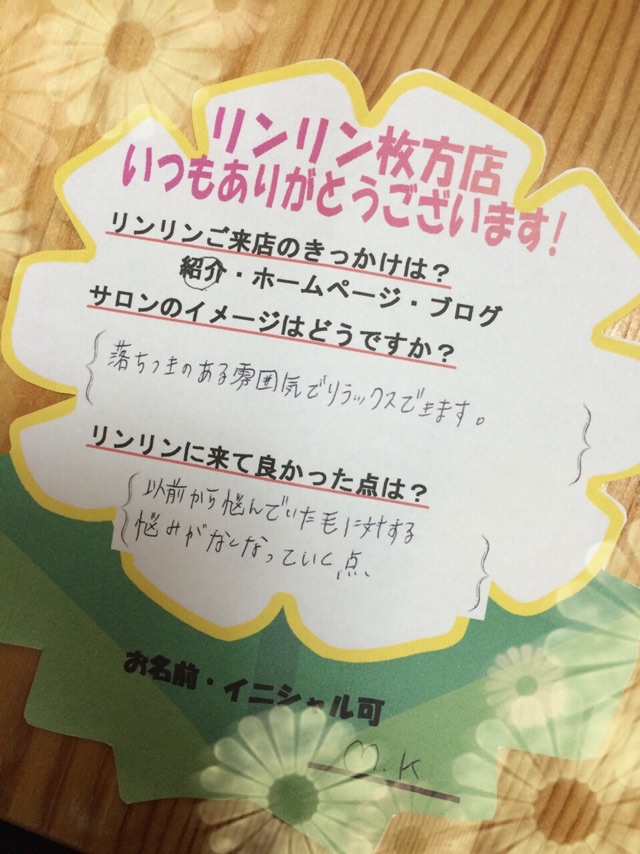 リンリン枚方店
いつもありがとうございます!
リンリンご来店のきっかけは?
紹介・ホームページ・ブログ
サロンのイメージはどうですか?
落ちつきのある雰囲気でリラックスできます。
リンリンに来て良かった点は?
以前から悩んでいた毛に対する
悩みがなくなっていく点、
お名前・イニシャル可
♡.K